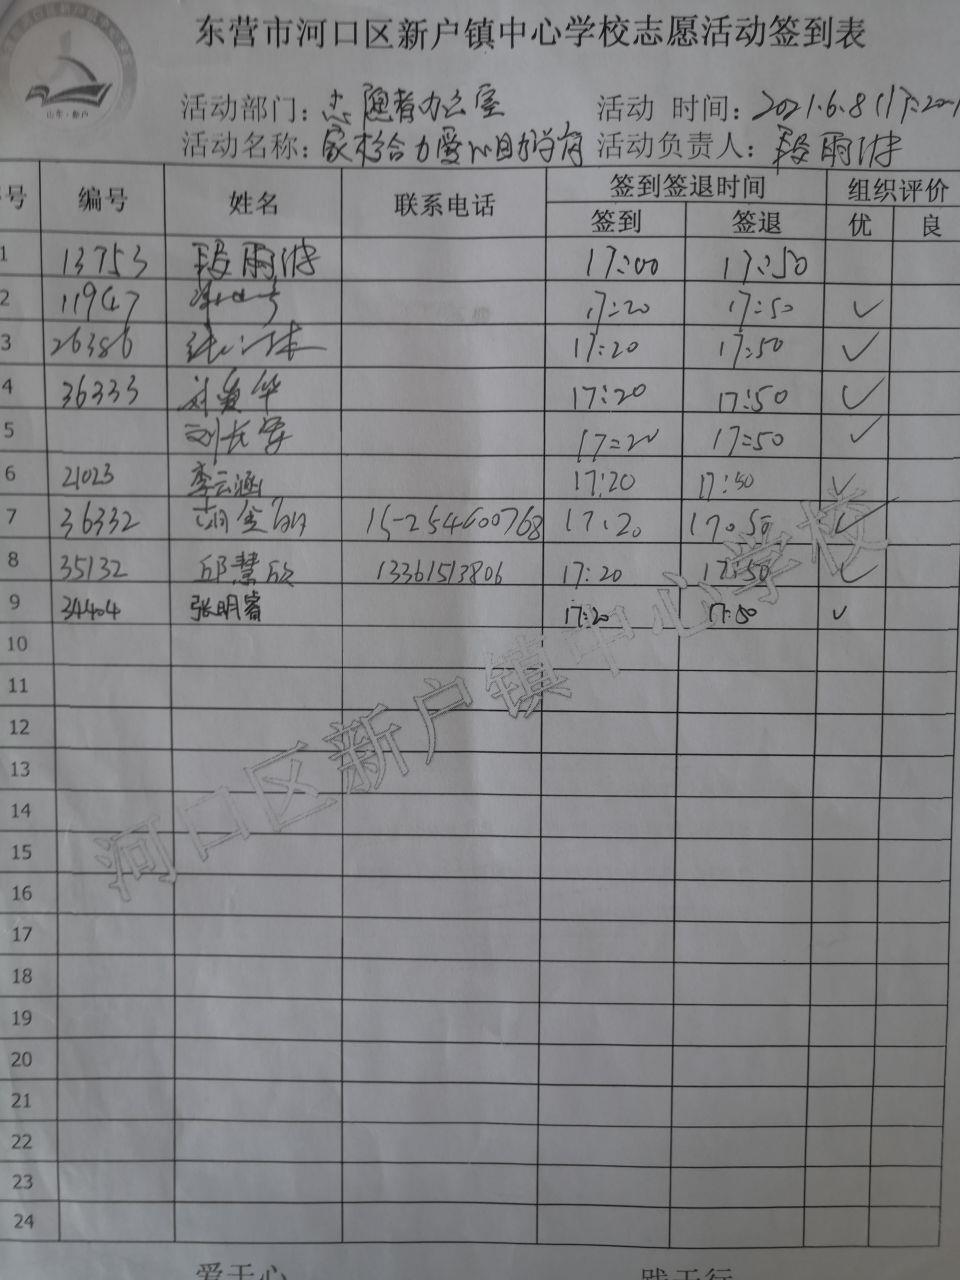 东营市河口区新户镇中心学校志愿活动签到表
山东·新户
活动部门：志愿者办公室 活动 时间：2021.6.8(17:20
活动名称：家校合力爱心助学 活动负责人：段雨
号 编号 姓名 联系电话 签到签退时间 组织评价
签到 签退 优 良
1 13753 段雨 17:00 17:50
2 11947 17:20 17:50 ✓
3 26386 17:20 17:50 ✓
4 36333 刘爱华 17:20 17:50 ✓
5 刘长军 17:20 17:50 ✓
6 21023 李云涵 17:20 17:50 ✓
7 36332 胡金 15254600768 17:20 17:50 ✓
8 35132 邱慧欣 13361513806 17:20 17:50 ✓
9 34404 张明睿 17:20 17:50 ✓
10
11
12
13
14
15
16
17
18
19
20
21
22
23
24
河口区新户镇中心学校
爱于心 践于行